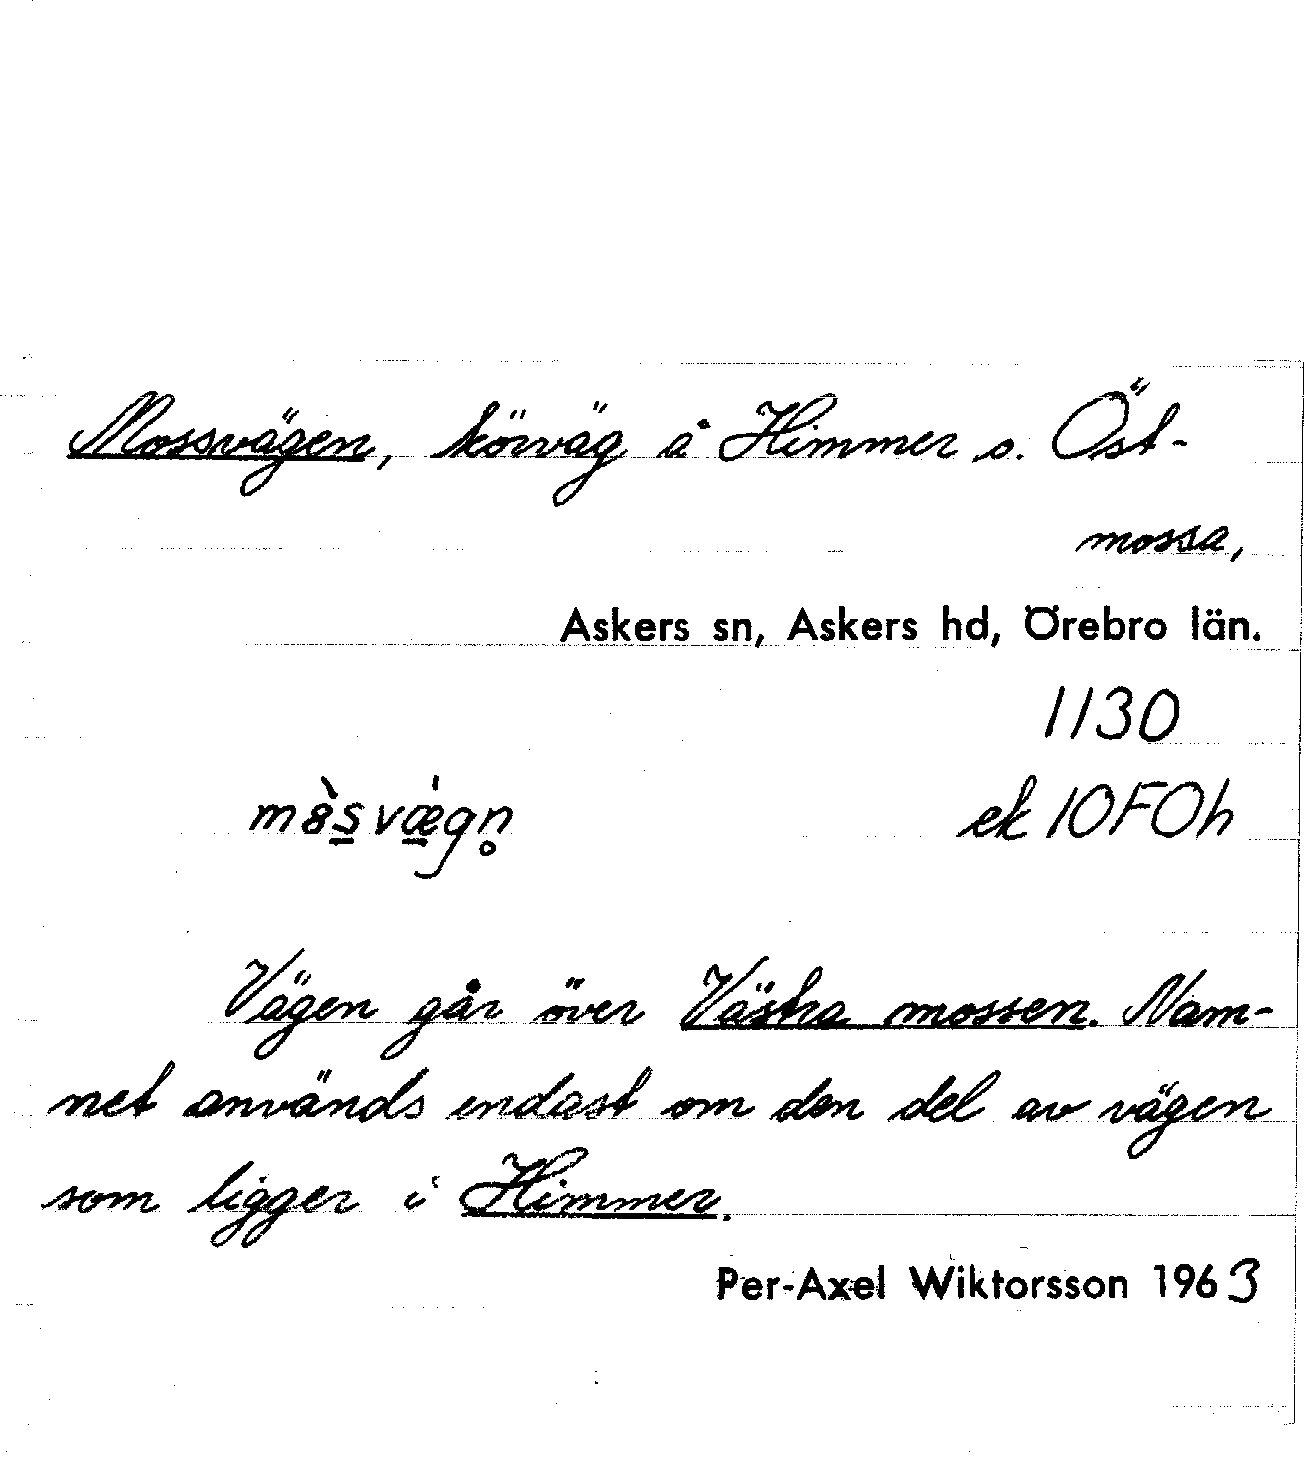 Mossvägen, körväg å Himmer o. Öst-
mossa,
Askers sn, Askers hd, Örebro län.
1130
ek 10F0h
Vägen går över Västra mossen. Nam-
net används endast om den del av vägen
som ligger i Himmer.
Per-Axel Wiktorsson 1963